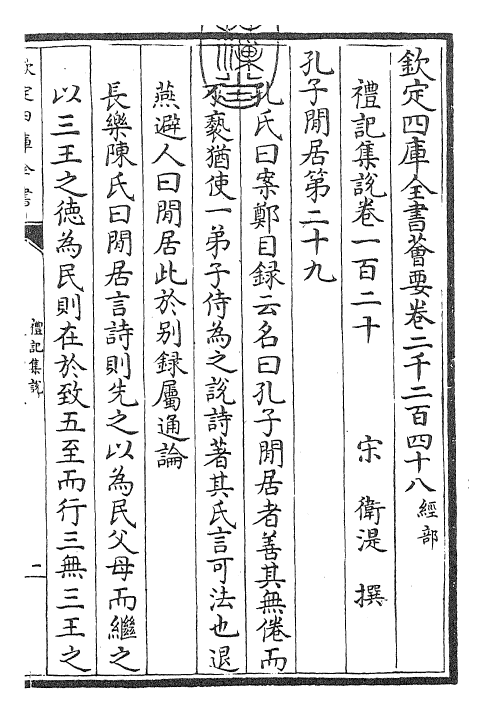 欽定四庫全書薈要卷二千二百四十八經部
禮記集說卷一百二十
宋 衛湜 撰
孔子閒居第二十九
孔氏曰案鄭目録云名曰孔子閒居者善其無倦而
不褻猶使一弟子侍為之說詩著其氏言可法也退
燕避人曰閒居此於别録屬通論
長樂陳氏曰閒居言詩則先之以為民父母而繼之
以三王之徳為民則在於致五至而行三無三王之
欽定四庫全書
禮記集說
二